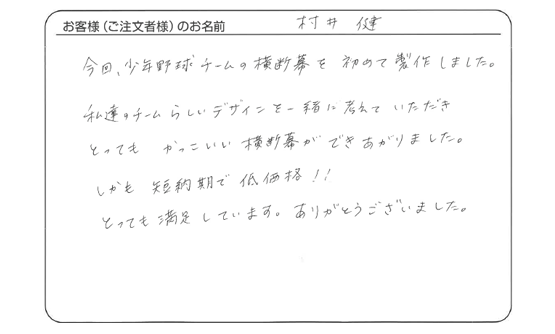 お客様（ご注文者様）のお名前 村井 健
今回、少年野球チームの横断幕を初めて製作しました。
私達のチームらしいデザインを一緒に考えていただき
とっても かっこいい横断幕ができあがりました。
しかも 短納期で低価格！！
とっても満足しています。ありがとうございました。